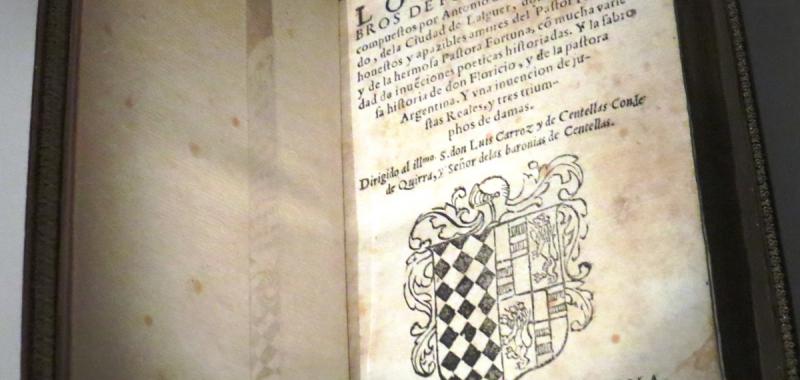 L O
BROS DE
compuestos por Antonio
do, dela Ciudad de Lalguer,
honestos y apazibles amores del Pastor
y de la hermosa Pastora Fortuna, cõ mucha varie
dad de inuẽciones poeticas historiadas. Y la sabro
sa historia de don Floricio, y de la pastora
Argentina. Y vna inuencion de ju-
stas Reales, y tres trium-
phos de damas.
Dirigido al illmo. S. don Luis Carroz y de Centellas Conde
de Quirra, y Señor delas baronias de Centellas.